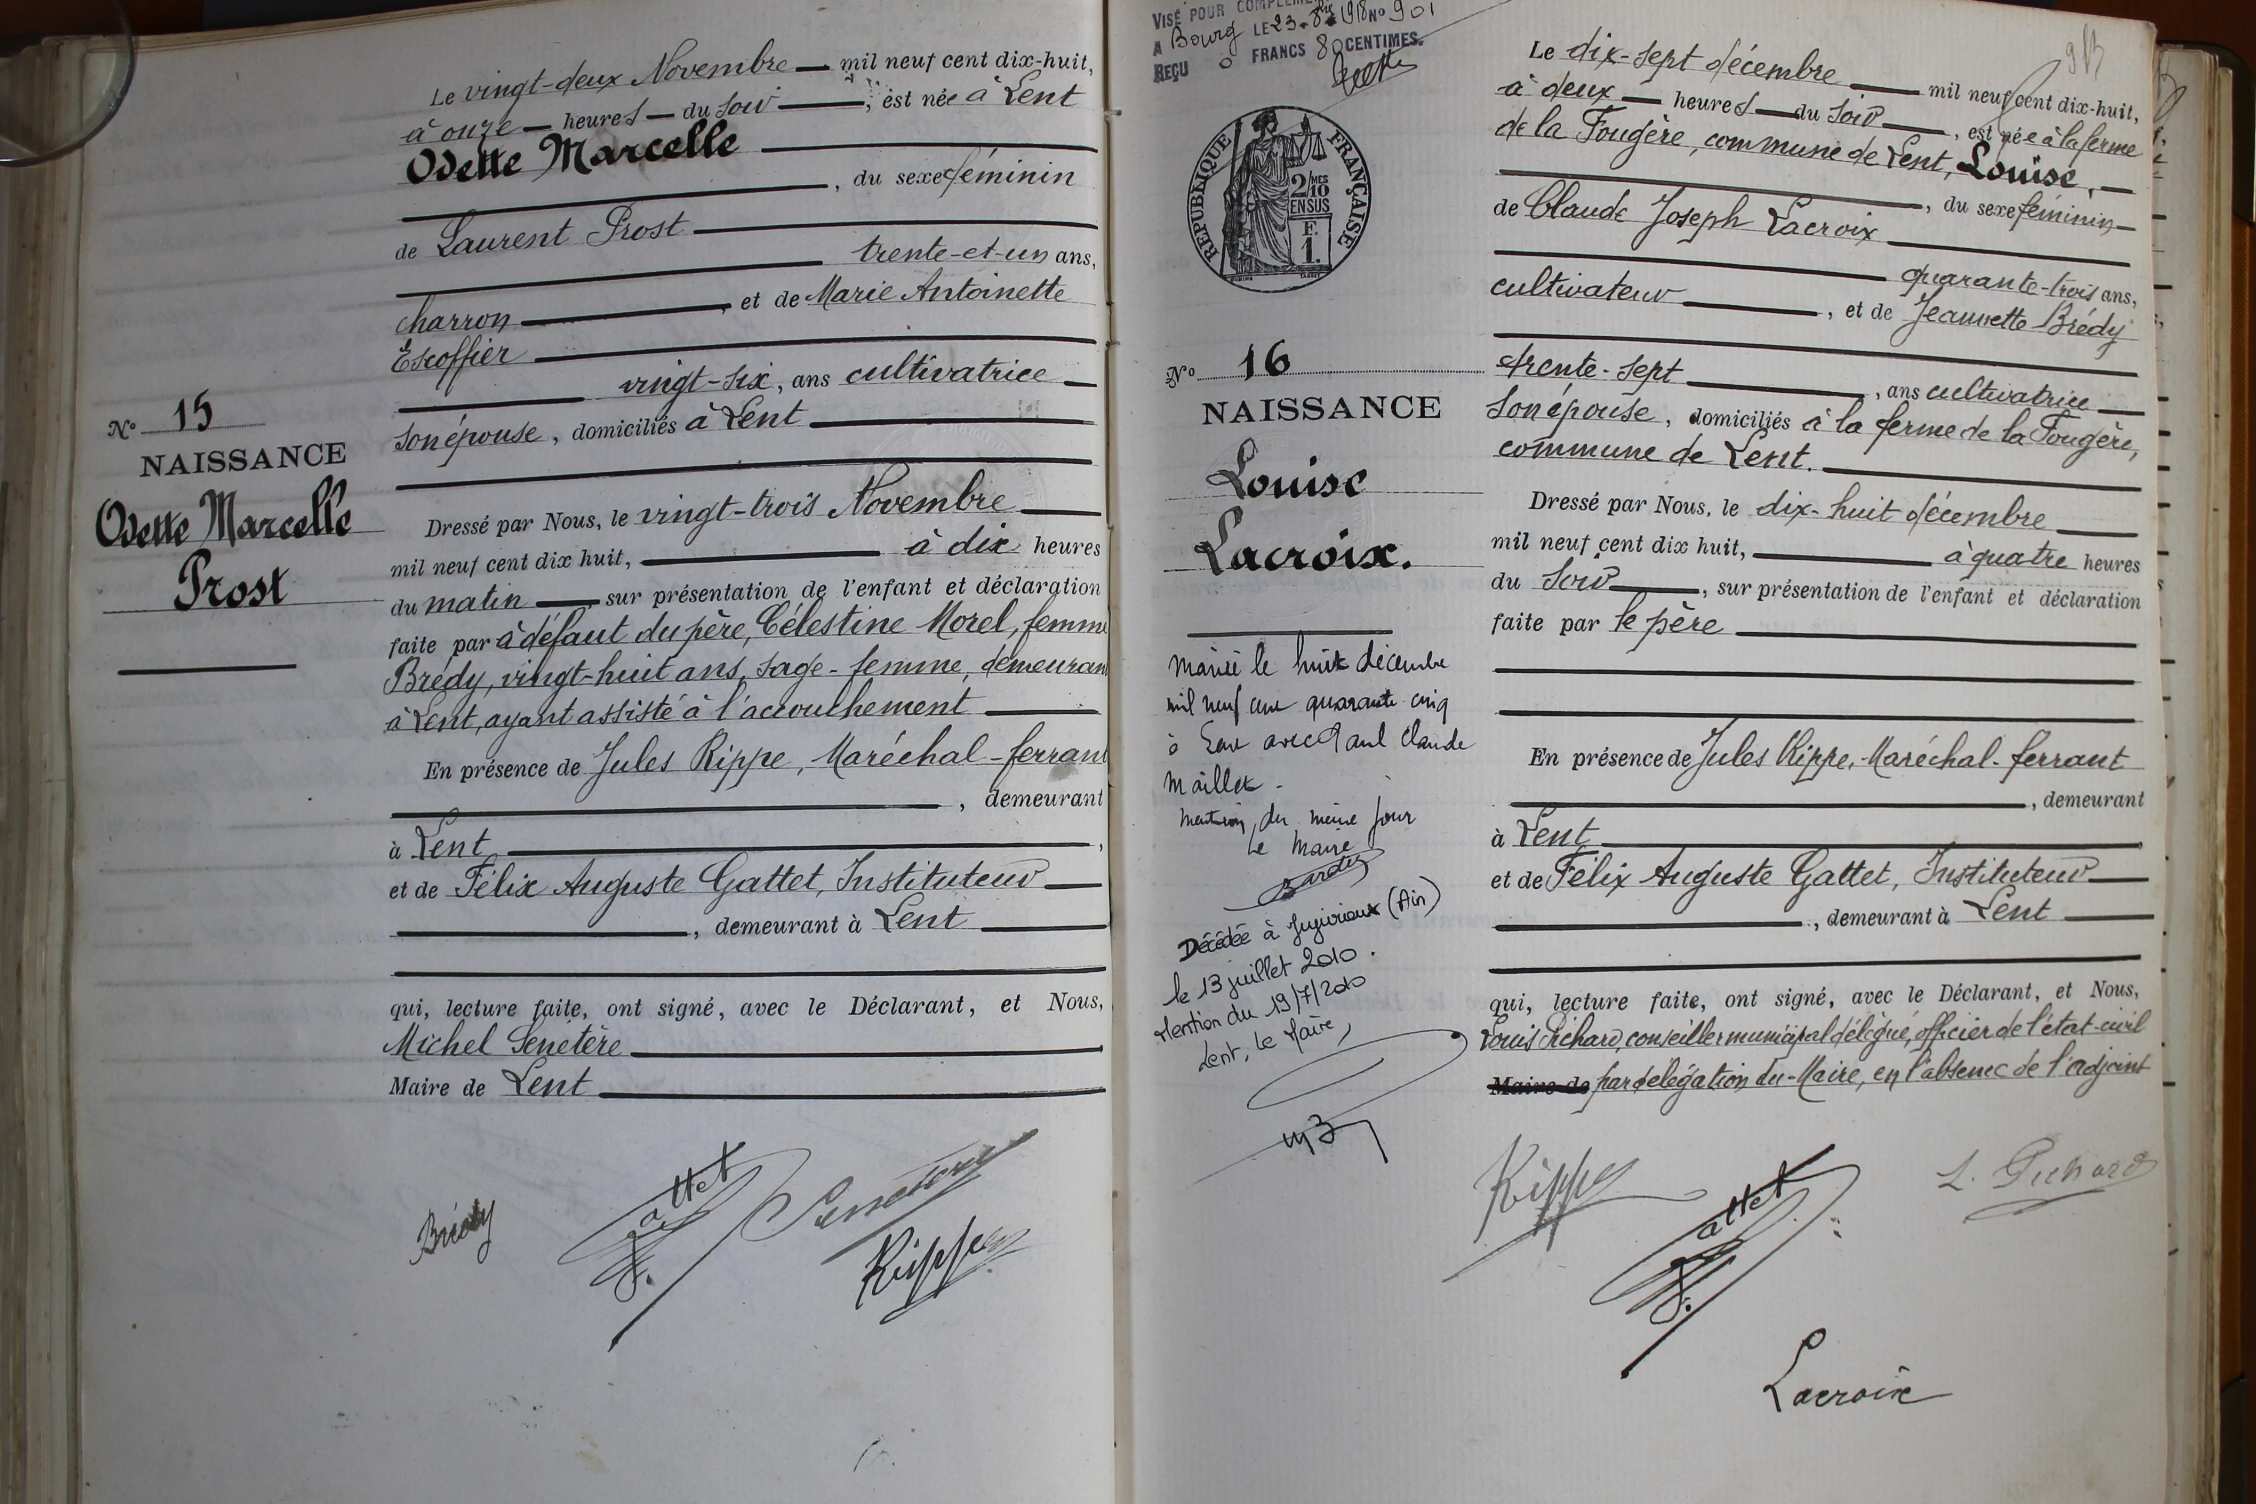 Le vingt-deux Novembre mil neuf cent dix-huit,
à onze heures du soir, est née à Lent
Odette Marcelle
, du sexe féminin
de Laurent Prost
trente-et-un ans,
charron, et de Marie Antoinette
Escoffier
vingt-six, ans cultivatrice
son épouse, domiciliés à Lent
No 15
NAISSANCE
Odette Marcelle
Prost
Dressé par Nous, le vingt-trois Novembre
mil neuf cent dix huit, à dix heures
du matin, sur présentation de l'enfant et déclaration
faite par à défaut du père, Célestine Morel, femme
Brédy, vingt-huit ans, sage-femme, demeurant
à Lent, ayant assisté à l'accouchement
En présence de Jules Rippe, Maréchal-ferrant
, demeurant
à Lent,
et de Félix Auguste Gattet, Instituteur
, demeurant à Lent
qui, lecture faite, ont signé, avec le Déclarant, et Nous,
Michel Senétère
Maire de Lent
Brédy
F. Gattet
Senetere
Rippe
VISÉ POUR COMPLÉME
A Bourg LE 23-8bre 1918 No 901
REÇU 0 FRANCS 80 CENTIMES.
RÉPUBLIQUE FRANÇAISE
2/MES
10
EN SUS
F.
1.
No 16
NAISSANCE
Louise
Lacroix.
Mariée le huit décembre
mil neuf cent quarante cinq
à Lent avec Paul Claude
Maillet.
Mention du même jour
Le Maire
Décédée à Jujurieux (Ain)
le 13 juillet 2010.
Mention du 19/7/2010
Lent, le Maire,
Le dix-sept décembre mil neuf cent dix-huit,
à deux heures du soir, est née à la ferme
de la Fougère, commune de Lent, Louise,
, du sexe féminin
de Claude Joseph Lacroix
quarante-trois ans,
cultivateur, et de Jeannette Brédy
trente-sept, ans cultivatrice
son épouse, domiciliés à la ferme de la Fougère,
commune de Lent.
Dressé par Nous, le dix-huit décembre
mil neuf cent dix huit, à quatre heures
du soir, sur présentation de l'enfant et déclaration
faite par le père
En présence de Jules Rippe, Maréchal-ferrant
, demeurant
à Lent
et de Félix Auguste Gattet, Instituteur
, demeurant à Lent
qui, lecture faite, ont signé, avec le Déclarant, et Nous,
Louis Pichard, conseiller municipal délégué, officier de l'état-civil
Maire de par délégation du Maire, en l'absence de l'adjoint
Rippe
F. Gattet
L. Pichard
Lacroix